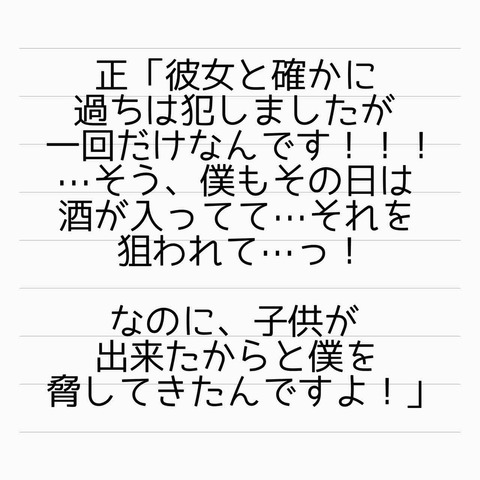 正「彼女と確かに
過ちは犯しましたが
一回だけなんです！！！
…そう、僕もその日は
酒が入ってて…それを
狙われて…っ！
なのに、子供が
出来たからと僕を
脅してきたんですよ！」